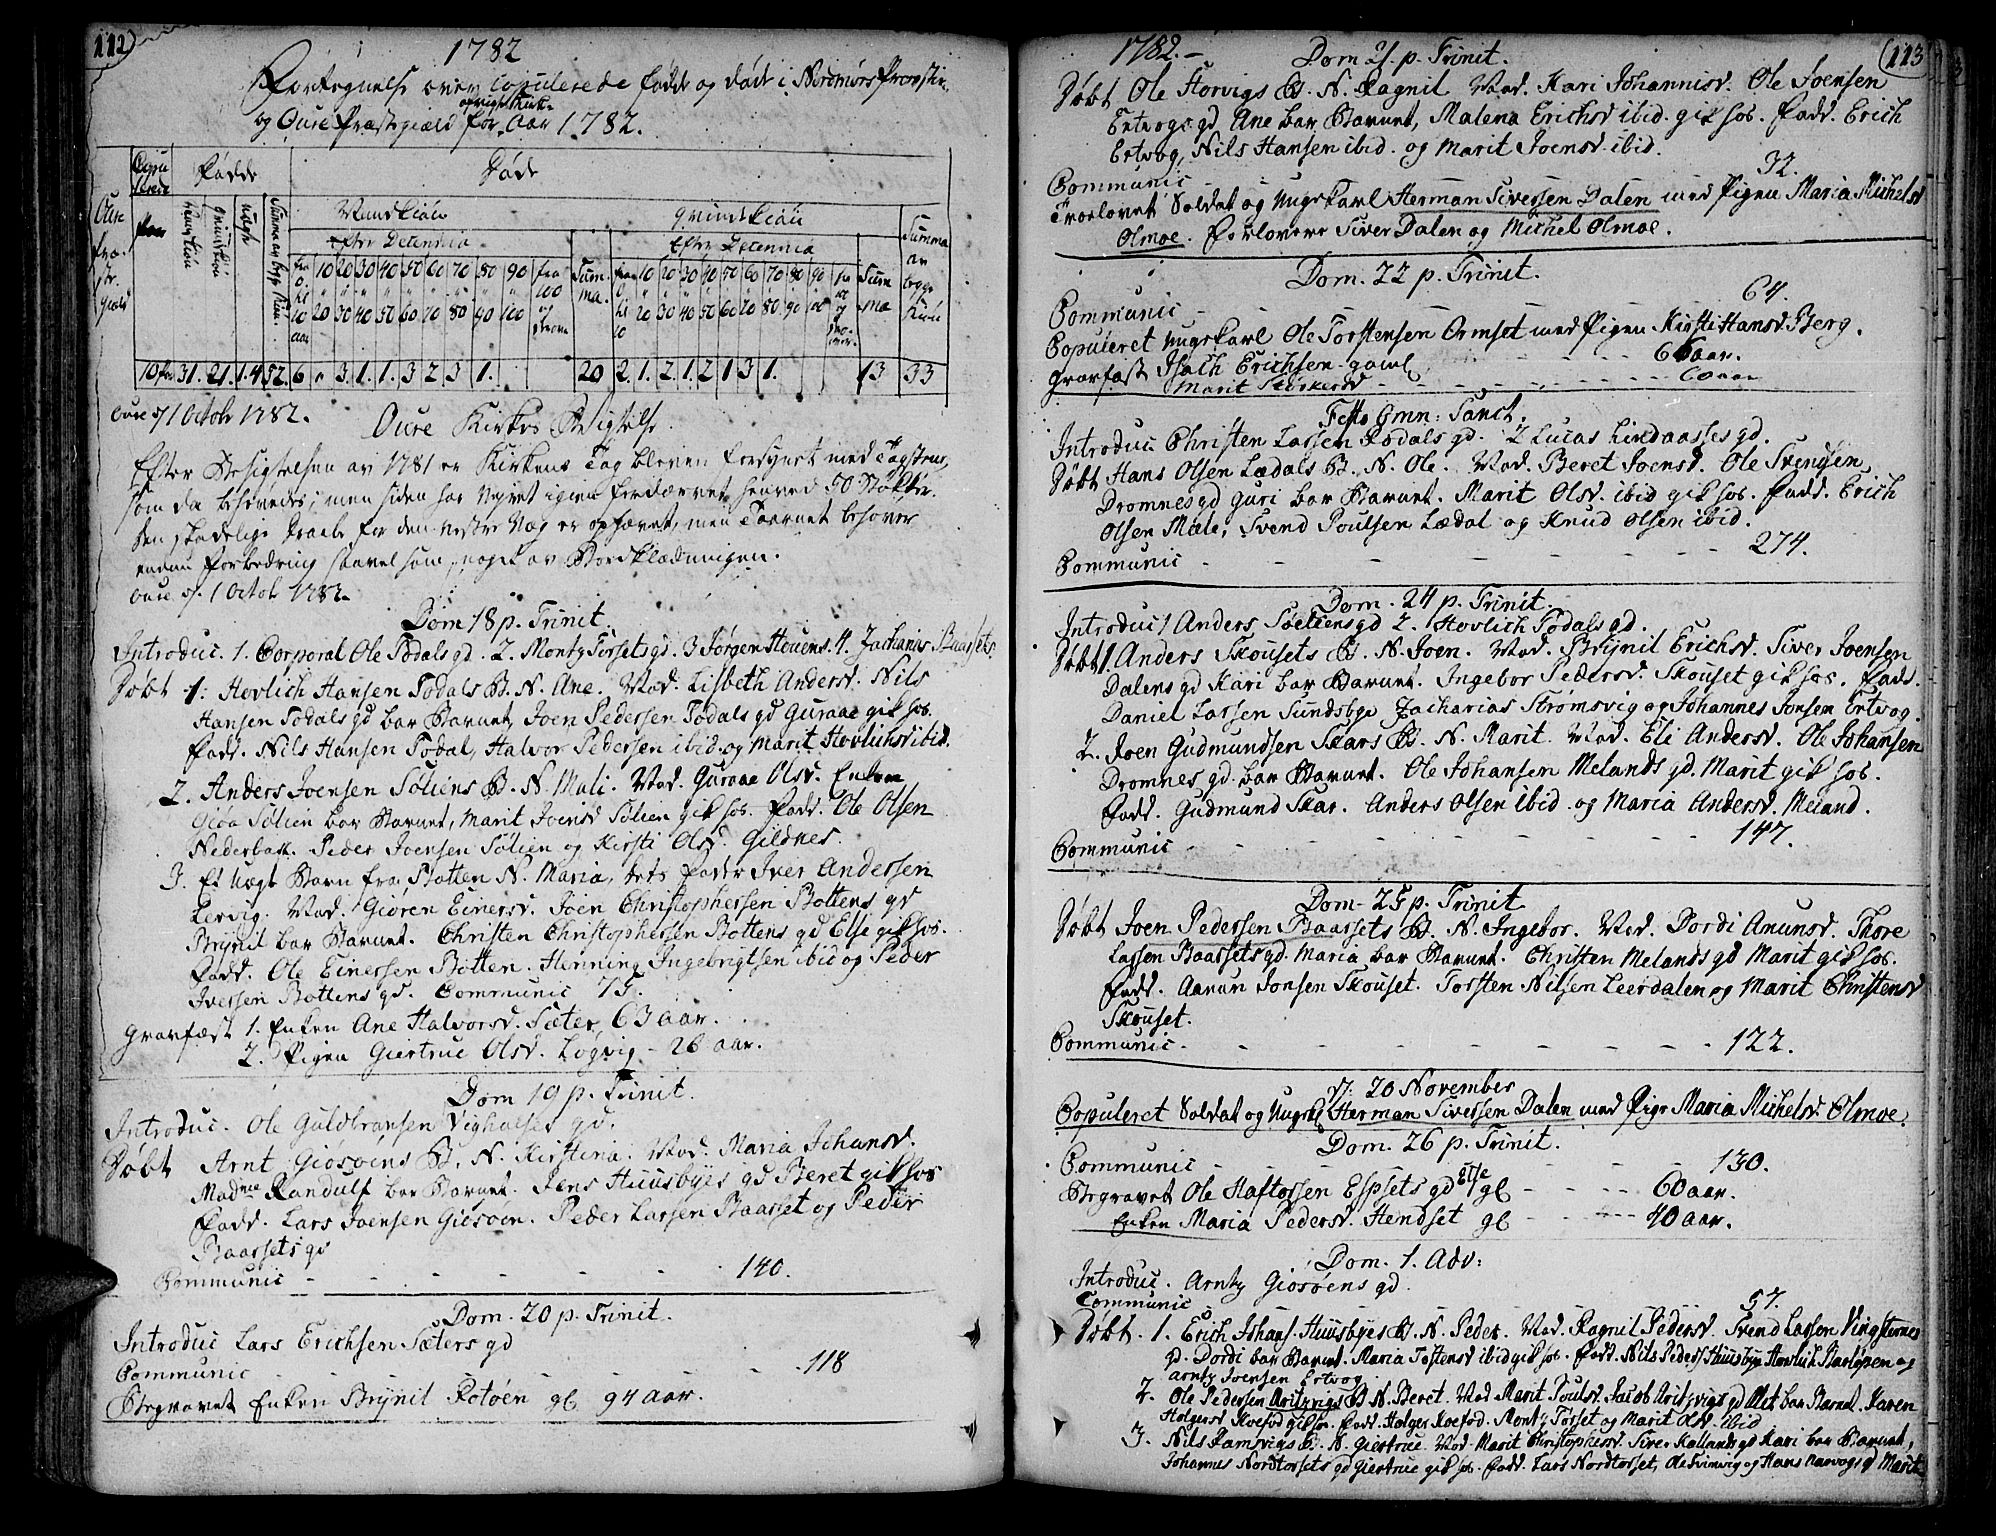 112
1782
Fortegnelse over Copulerede fødde og døde i Nordmørs Provstie
og Oure Præstegiæld for Kirke Aar 1782.
Copulerede Fødde Døde
Mandkiøn qvindekiøn
Efter Decennia Efter Decennia
Summa av begge Kiøn
10 par 31. 21. 1. 4 52. 6 " 3. 1. 1. 3 2 3 1. 20 2. 1. 2. 1. 2 1 3 1. 13 33
Oure d. 1 Octobr 1782. Oure Kirkes Besigtelse
Efter Besigtelsen av 1781 er Kirkens Tag bleven forsynet med Tagsteen,
som da behøvedes; men siden har Veyret igien fordærvet henved 50 Støkker.
den skadelige Draabe for den vestre Væg er ophævet, men Taarnet behøver
endnu forbedring saavel som noget av Bordklædningen.
Oure d. 1 Octob 1782.
Dom 18 p. Trinit.
Introduc. 1. Corporal Ole Todals gd. 2. Montz Torsets gd. 3 Jørgen Houens. 4. Zacharias Baassets.
Døbt 1: Hovlich Hansen Todals B. N. Ane. Mod. Lisbeth Andersd. Nils
Hansen Todals gd bar Barnet, Joen Pedersen Todals gd Guraae gik hos.
Fadd. Nils Hansen Todal, Halvor Pedersen ibid. og Marit Hovlichsd ibid.
2. Anders Joensen Søliens B. N. Mali. Mod. Guraae Olsd. Enken
Giøa Sølien bar Barnet, Marit Joensd Sølien gik hos. Fadd. Ole Olsen
Nederbak. Peder Joensen Sølien og Kirsti Olsd. Gildnes.
3. Et Uægt Barn fra Botten N. Maria, dets Fader Iver Andersen
Lervig. Mod. Giøren Einersd. Joen Christophersen Bottens gd
Brynil bar Barnet. Christen Christophersen Bottens gd Else gik hos.
Fadd. Ole Einersen Botten. Henning Ingebrigtsen ibid og Peder
Iversen Bottens gd. Communic 75.
Gravfæst 1. Enken Ane Halvorsd. Sæter, 63 aar.
2. Pigen Giertrue Olsd. Løgvig - 26 aar.
Dom 19 p. Trinit.
Introduc. Ole Guldbransen Vighalses gd.
Døbt Arnt Giøsøens B. N. Kirstina. Mod. Maria Johansd.
Madme Randulf bar Barnet. Jens Huusbyes gd Beret gik hos
Fadd. Lars Joensen Giøsøen. Peder Larsen Baasset og Peder
Baassets gd
Communic 140.
Dom. 20 p. Trinit.
Introduc Lars Erichsen Sæters gd
Communic 118
Begravet Enken Brynil Rotøen gl 94 aar.
1782.
113
Dom 21. p. Trinit.
Døbt Ole Horvigs B. N. Ragnil Mod. Kari Johannisd. Ole Joensen
Ertvogs gd Ane bar Barnet, Malena Erichsd ibid. gik hos. Fadd. Erich
Ertvog, Nils Hansen ibid. og Marit Joensd. ibid.
Communic 32.
Troelovet Soldat og Ungekarl Herman Siversen Dalen med Pigen Maria Michelsd
Olmoe. Forlovere Siver Dalen og Michel Olmoe.
Dom. 22 p. Trinit.
Communic 64.
Copuleret Ungekarl Ole Torstensen Ormset med Pigen Kirsti Hansd. Berg.
Gravfæst Isach Erichsen gaml 66 aar.
Marit Sterkersd 60 aar
Festo Omn: Sanct.
Introduc. Christen Larsen Rodals gd. 2 Lucas Lindaasses gd.
Døbt Hans Olsen Lædals B. N. Ole. Mod. Beret Joensd. Ole Svendsen
Dromnes gd Guri bar Barnet. Marit Olsd. ibid gik hos. Fadd. Erich
Olsen Mæle, Svend Poulsen Lædal og Knud Olsen ibid.
Communic 274.
Dom. 24 p. Trinit.
Introduc 1 Anders Søeliens gd 2. Hovlich Todals gd.
Døbt 1. Anders Skousets B. N. Joen. Mod. Brynil Erichsd. Siver Joensen
Dalens gd Kari bar Barnet. Ingebor Pedersd. Skouset gik hos. Fadd.
Daniel Larsen Sundsbye Zacharias Strømsvig og Johannes Jonsen Ertvog.
2. Joen Gudmundsen Skars B. N. Marit. Mod. Eli Andersd. Ole Johansen
Dromnes gd. bar Barnet. Ole Johansen Melands gd. Marit gik hos.
Fadd. Gudmund Skar. Anders Olsen ibid. og Maria Andersd. Meland.
Communic 147.
Dom. 25 p. Trinit
Døbt Joen Pedersen Baassets B. N. Ingebor. Mod. Dordi Amunsd. Thore
Larsen Baassets gd. Maria bar Barnet. Christen Melands gd Marit gik hos.
Fadd. Aamun Jonsen Skouset. Torsten Nilsen Leerdalen og Marit Christensd
Skouset.
Communic. 122.
d. 20 November
Copuleret Soldat og Ungkl Herman Siversen Dalen med Pige Maria Michelsd. Olmoe.
Dom. 26 p. Trinit.
Communic 130.
Begravet Ole Haftorsen Espsets gd Else gl 60 aar.
Enken Maria Pedersd. Hendset gl 40 aar.
Dom. 1. Adv:
Introduc. Arnty Giøsøens gd.
Communic 57.
Døbt. 1. Erich Johans. Huusbyes B. N. Peder. Mod. Ragnil Pedersd. Svend Larsen Vingsternes
gd. Dordi bar Barnet. Maria Tostensd ibid gik hos. Fadd. Nils Peders Huusbye Hovlich og
Arnty Joensen Ertvog.
2. Ole Pedersen B. N. Beret. Mod Marit Poulsd. Jacob gd Met bar Barnet. Karen
Holgersd Roefod gik hos. Fadd. Holger Roefod. Montz Torset og Marit Olsd. ibid
3. Nils Ramsvigs B. N. Giertrue. Mod. Marit Christophersd. Siver Hallands gd Kari bar Barnet,
Johannes Nordtorsets gd Giertrue gik hos. Fadd. Lars Nordtorset, Ole Svinvig og Hans gd Marit